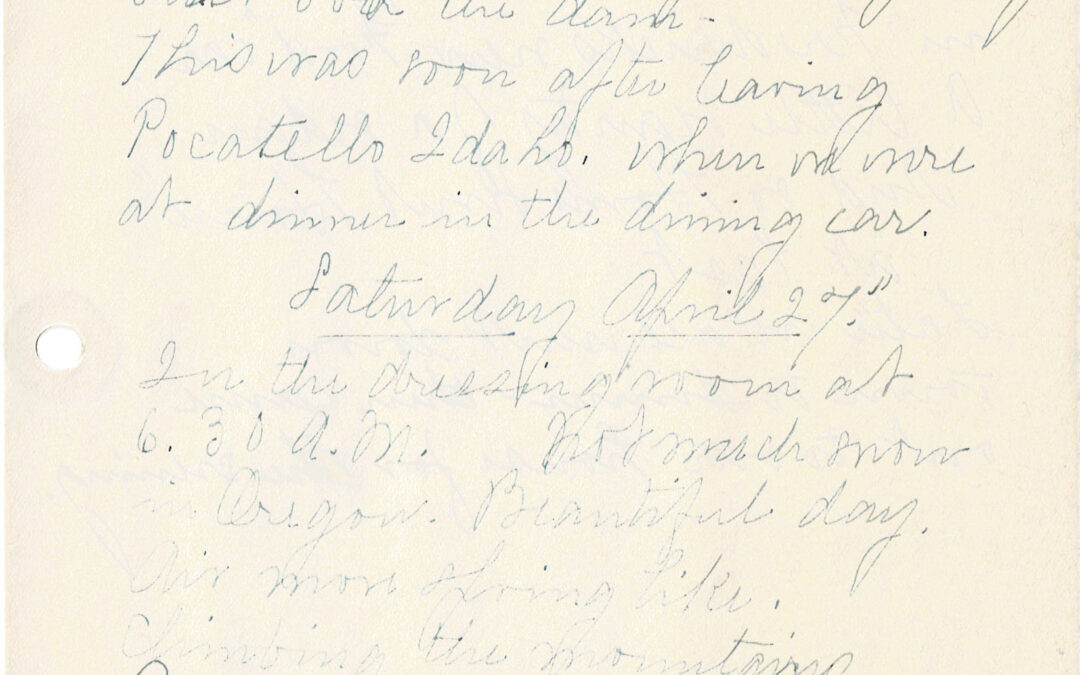 over the dam.
This was soon after leaving
Pocatello Idaho. when we were
at dinner in the dining car.
Saturday April 27"
In the dressing room at
6.30 A.M. Not much snow
in Oregon. Beautiful day.
Air more spring like.
Climbing the mountains